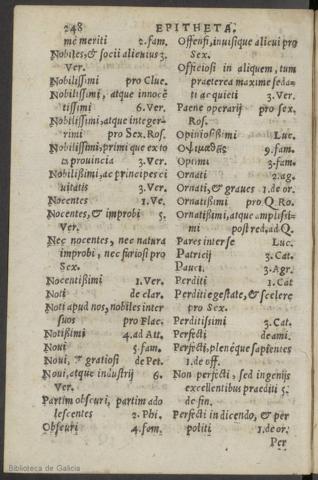 248 EPITHETA.
me meriti 2. fam.
Nobiles, & socii alicuius 3.
Ver.
Nobilissimi pro Clue.
Nobilissimi, atque innocẽ
tissimi 6. Ver.
Nobilissimi, atque integer-
rimi pro Sex. Ros.
Nobilissimi, primi que ex to
ta prouincia 3. Ver.
Nobilißimi, ac principes ci
uitatis 3. Ver.
Nocentes 1. Ve.
Nocentes, & improbi 5.
Ver.
Nec nocentes, nec natura
improbi, nec furiosi pro
Sex.
Nocentißimi 1. Ver.
Noti de clar.
Noti apud nos, nobiles inter
suos pro Flac.
Notißimi 4. ad Att.
Noui 5. fam.
Noui, & gratiosi de Pet.
Noui, atque industrij 6.
Ver.
Partim obscuri, partim ado
lescentes 2. Phi.
Obscuri 4. fam.
Offensi, inuisique alicui pro
Sex.
Officiosi in aliquem, tum
praeterea maxime seda-
ti ac quieti 3. Ver.
Paene operarij pro sex.
Ros.
Opiniosißimi Luc.
9. fam.
Optimi 3. fam.
Ornati 2. ag.
Ornati, & graues 1. de or.
Ornatißimi pro Q. Ro.
Ornatißimi, atque amplissi-
mi post red, ad Q.
Pares inter se Luc.
Patricij 3. Cat.
Pauci. 3. Agr.
Perditi 1. Cat
Perditi egestate, & scelere
pro Sex.
Perditissimi 3. Cat.
Perfecti de ami.
Perfecti, plenéque sapientes
1. de off.
Non perfecti, sed ingenijs
excellentibus praediti 5.
de fin.
Perfecti in dicendo, & per
politi 1. de or.
Per
Biblioteca de Galicia